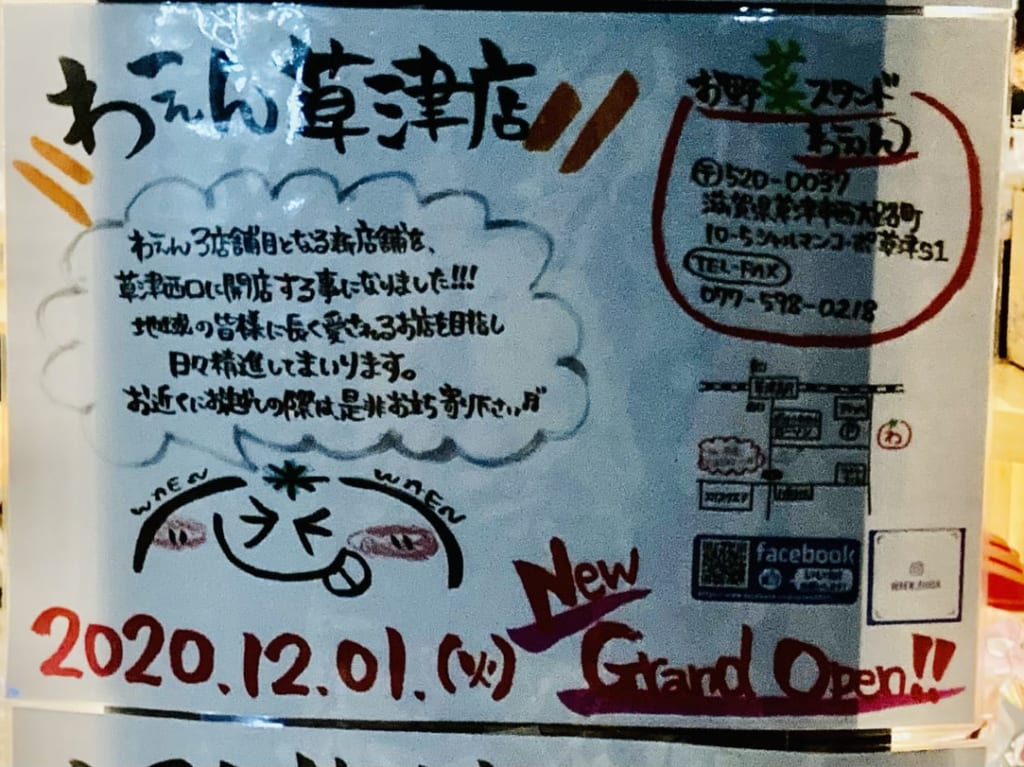 わえん草津店
お野菜スタンド
わえん
〒520-0037
滋賀県草津市西大路町
10-5シャルマンコーポ草津S1
TEL-FAX
077-598-0218
わえん3店舗目となる新店舗を、
草津西口に開店する事になりました!!!
地域の皆様に長く愛されるお店を目指し
日々精進してまいります。
お近くにお越しの際は是非お立ち寄り下さい
WAEN
WAEN
わ
facebook
New
2020.12.01.(火)
Grand Open!!